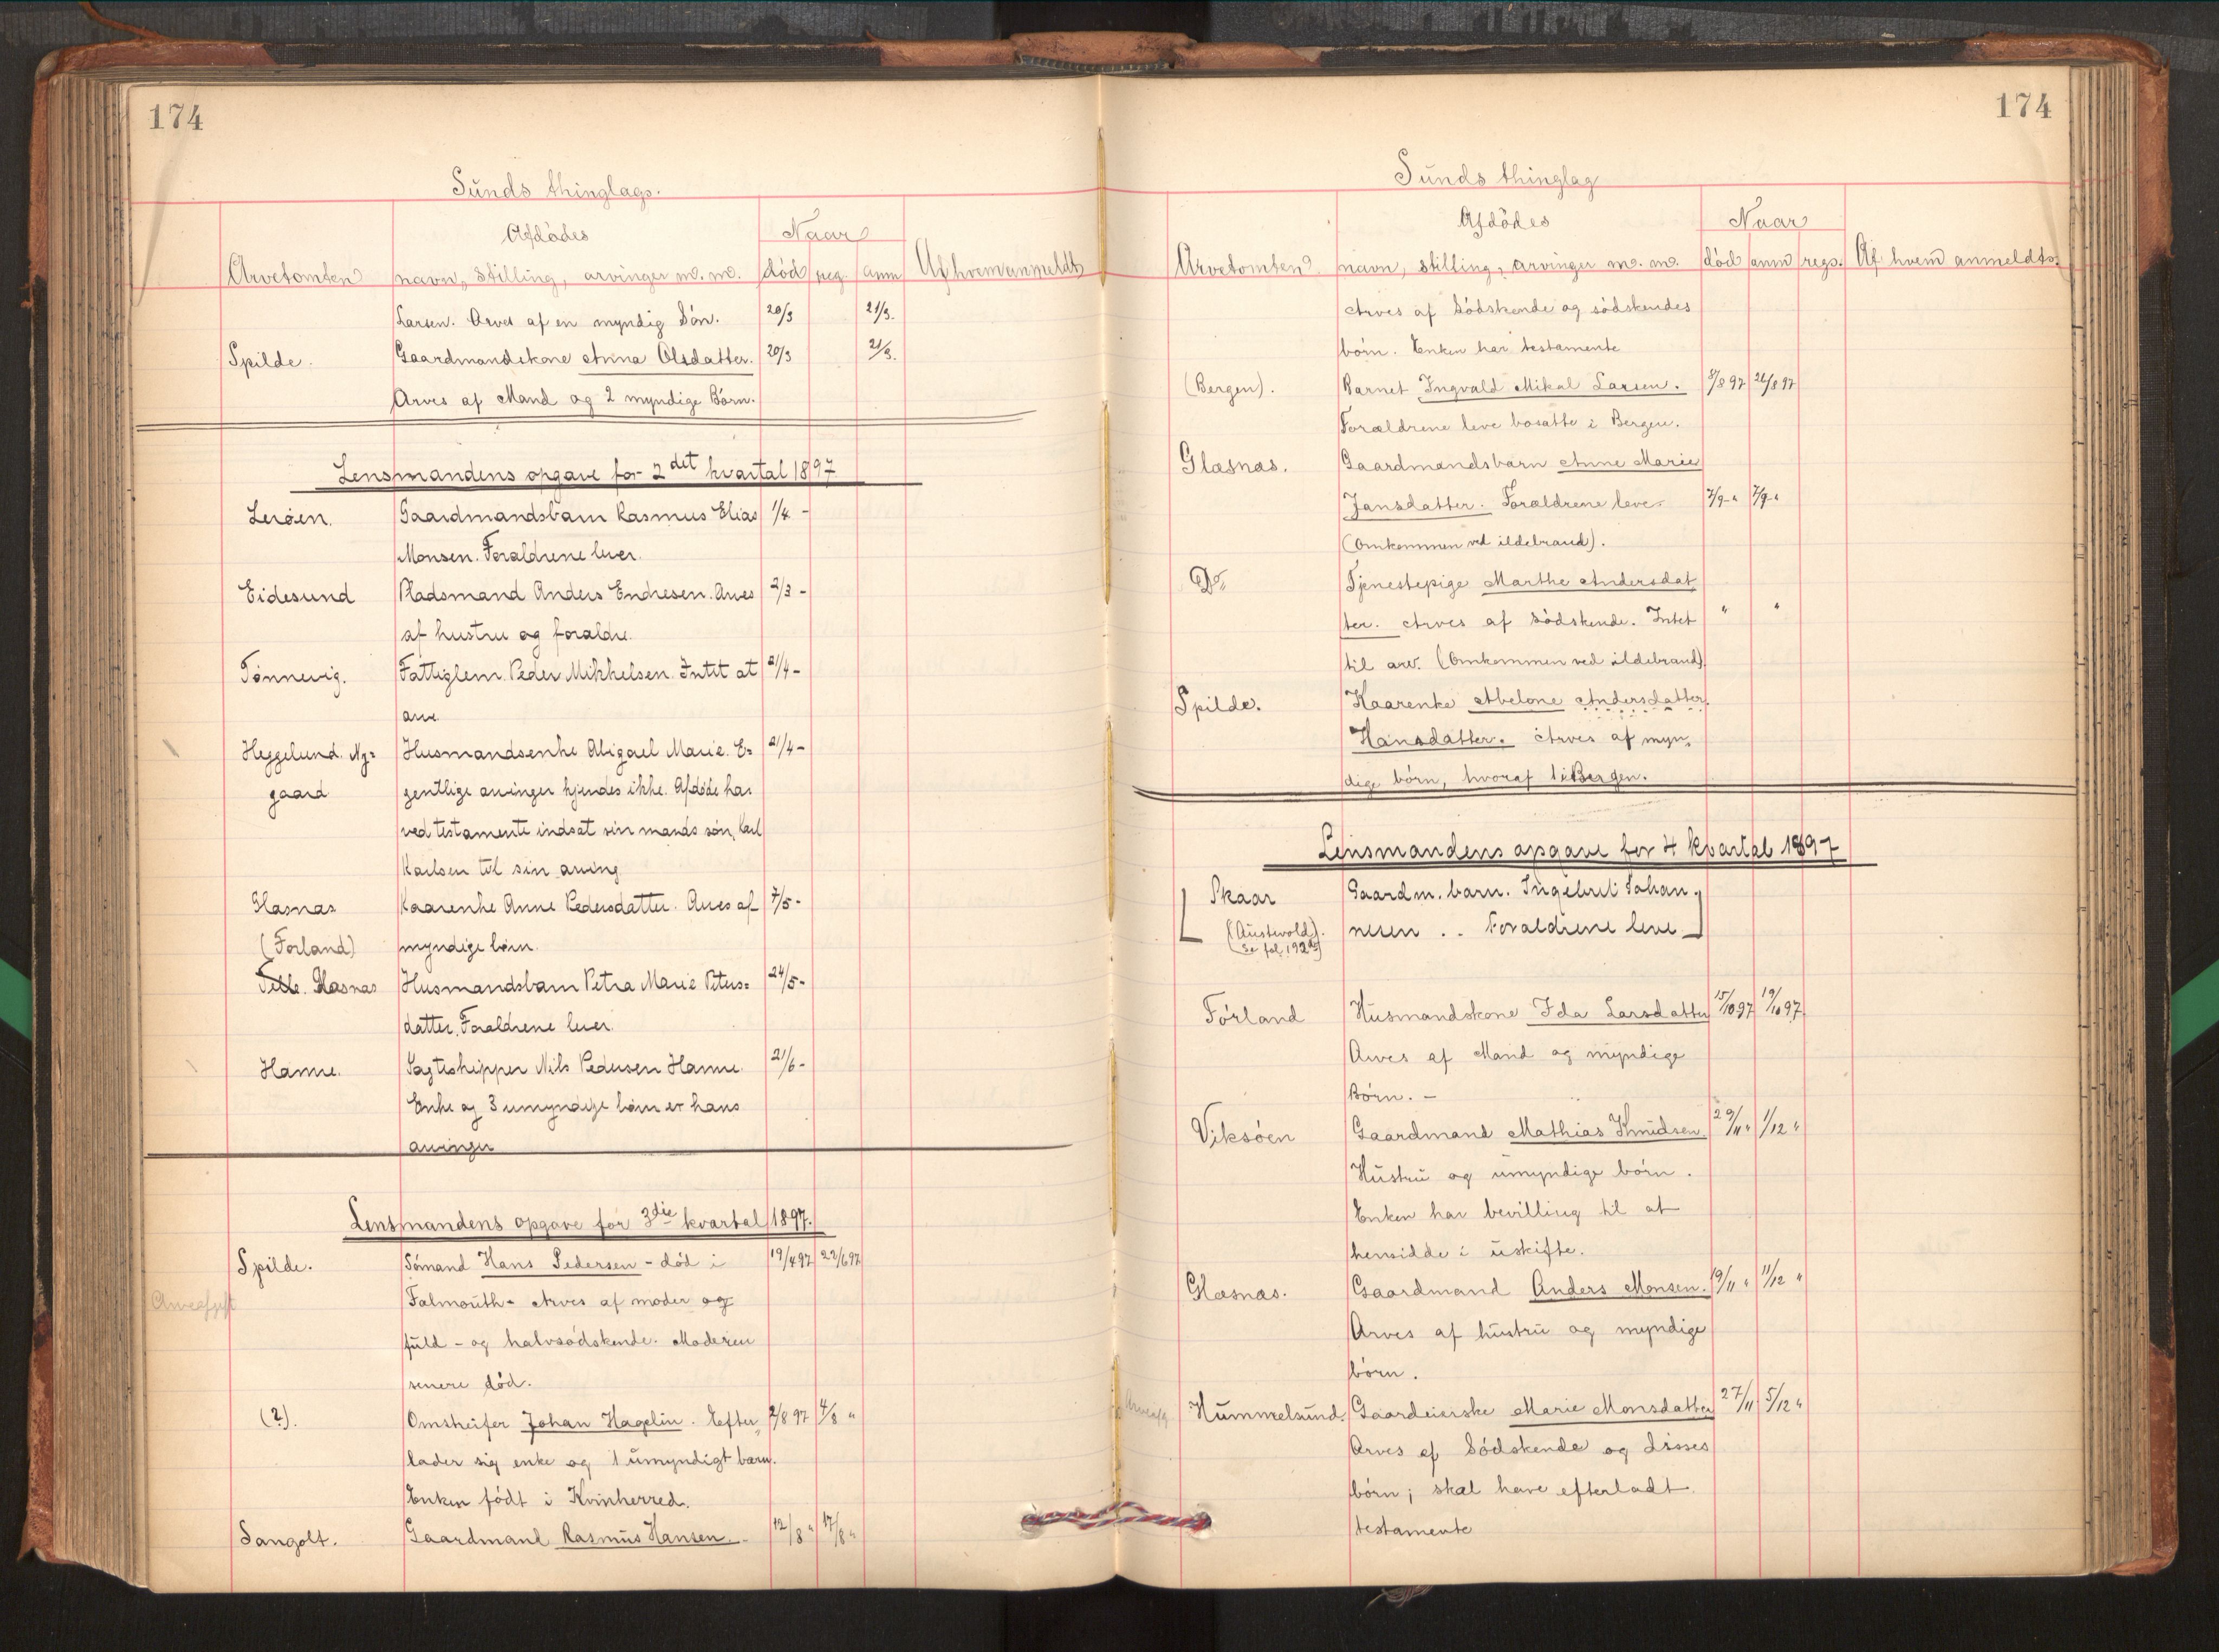 174
Sunds thinglags.
Afdødes
Naar
Arvetomten navn, stilling, arvinger m. m. død reg. anm Af hvem anmeldt
Larsen. Arves af en myndig Søn. 20/3 21/3.
Spilde. Gaardmandskone Anna Olsdatter. 20/3 21/3.
Arves af Mand og 2 myndige Børn.
Lensmandens opgave for 2det kvartal 1897
Lerøen. Gaardmandsbarn Rasmus Elias 1/4 -
Monsen. Forældrene lever.
Eidesund Pladsmand Anders Endresen. Arves 2/3 -
af hustru og forældre.
Tønnevig. Fattiglem. Peder Mikkelsen. Intet at 21/4 -
arve.
Heggelund. Ny= Husmandsenke Abigael Marie. E= 21/4 -
gaard gentlige arvinger kjendes ikke. Afdøde har
ved testamente indsat sin mands søn, Carl
Karlsen til sin arving
Glasnas Kaarenke Anne Pedersdatter. Arves af 7/5 -
(Forland) myndige børn.
Glasnas Husmandsbarn Petra Marie Peters= 24/5 -
datter. Forældrene lever.
Hamre. Jagteskipper Nils Pedersen Hamre. 21/6 -
Enke og 3 umyndige børn er hans
arvinger
Lensmandens opgave for 3die kvartal 1897.
Spilde. Sømand Hans Pedersen - død i 19/4 97 22/6 97
Arveafgift Falmouth - Arves af moder og
fuld - og halvsødskende. Moderen
senere død.
(?). Omstreifer Johan Hagelin. Efter 2/8 97 4/8 "
lader sig enke og 1 umyndigt barn.
Enken født i Kvinherred.
Sangolt. Gaardmand Rasmus Hansen. - 12/8 " 17/8 "
174
Sunds thinglag
Afdødes
Naar
Arvetomten navn, stilling, arvinger m. m. død anm regs. Af hvem anmeldt.
Arves af Sødskende og sødskendes
børn. Enken har testamente
(Bergen). Barnet Ingvald Mikal Larsen. 8/8 97 26/8 97
Forældrene leve bosatte i Bergen.
Glasnas. Gaardmandsbarn Anne Marie
Jansdatter. Forældrene leve. 7/9 - " 7/9 - "
(Omkommen ved ildebrand).
Do Tjenestepige Marthe Andersdat
ter. Arves af Sødskende. Intet " "
til arv. (Omkommen ved ildebrand).
Spilde. Kaarenke Abelone Andersdatter
Hansdatter. Arves af myn,
dige børn, hvoraf 1 i Bergen.
Lensmandens opgave for 4 kvartal 1897
Skaar Gaardm. barn. Ingebrit Johan,
(Austevold). nesen .. Forældrene leve
(Se fol. 192)
Førland Husmandskone Ida Larsdatter 15/10 97 19/10 97
Arves af Mand og myndige
Børn. -
Viksøen Gaardmand Mathias Knudsen. 29/11 " 1/12 "
Hustru og umyndige børn.
Enken har bevilling til at
hensidde i uskifte.
Glasnas. Gaardmand Anders Monsen. 19/11 " 11/12 "
Arves af hustru og myndige
børn.
Arveafg. Hummelsund. Gaardeierske Marie Monsdatter 27/11 5/12 "
Arves af Sødskende og disses
børn; skal have efterladt
testamente